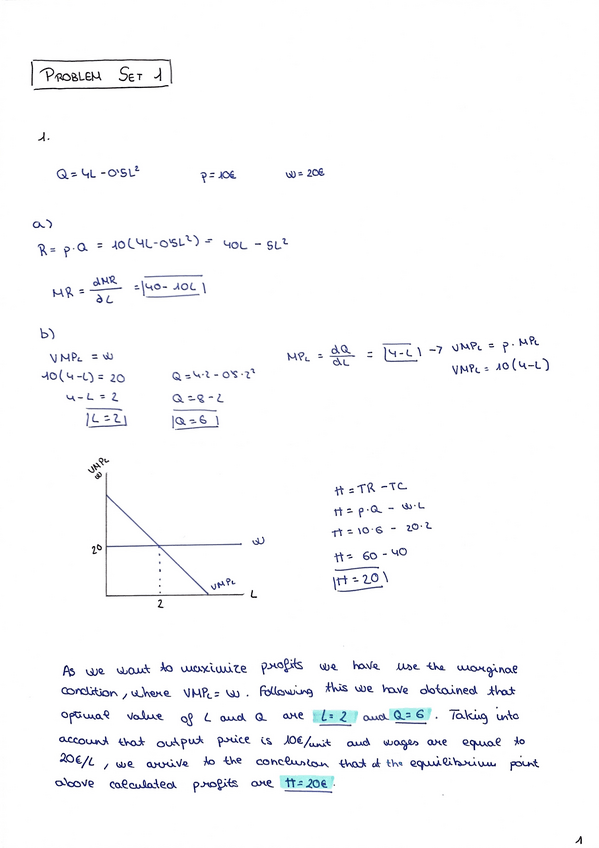 PROBLEM SET 1
1.
Q = 4L - 0'5L² p = 10€ w = 20€
a)
R = p·Q = 10(4L-0'5L²) = 40L - 5L²
MR = dMR/dL = 40 - 10L
b)
VMPL = w MPL = dQ/dL = 4-L → VMPL = p · MPL
10(4-L) = 20 Q = 4·2 - 0'5·2² VMPL = 10(4-L)
4-L = 2 Q = 8 - 2
L = 2 Q = 6
VMPL
w
20
w
VMPL
L
2
π = TR - TC
π = p·Q - w·L
π = 10·6 - 20·2
π = 60 - 40
π = 20
As we want to maximize profits we have use the marginal
condition, where VMPL = w. Following this we have obtained that
optimal value of L and Q are L=2 and Q=6. Taking into
account that output price is 10€/unit and wages are equal to
20€/L, we arrive to the conclusion that at the equilibrium point
above calculated profits are π=20€.
1